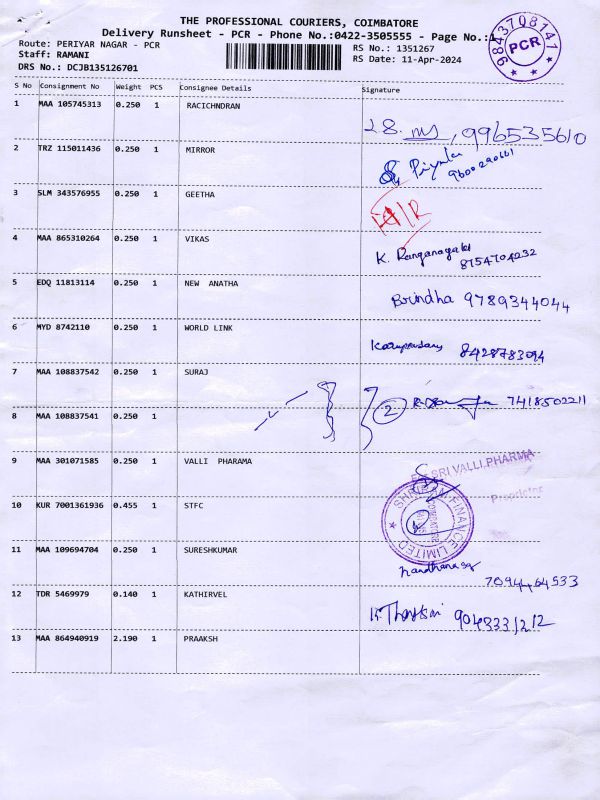 THE PROFESSIONAL COURIERS, COIMBATORE
Delivery Runsheet - PCR - Phone No.:0422-3505555 - Page No.:1
Route: PERIYAR NAGAR - PCR
Staff: RAMANI
DRS No.: DCJB135126701
RS No.: 1351267
RS Date: 11-Apr-2024
9843708141
PCR
S No Consignment No Weight PCS Consignee Details Signature
1 MAA 105745313 0.250 1 RACICHNDRAN
28. ms, 9965535610
2 TRZ 115011436 0.250 1 MIRROR
Priyanka 9600290661
3 SLM 343576955 0.250 1 GEETHA
4 MAA 865310264 0.250 1 VIKAS
K. Ranganayaki 8754704232
5 EDQ 11813114 0.250 1 NEW ANATHA
Brindha 9789344044
6 MYD 8742110 0.250 1 WORLD LINK
8428783094
7 MAA 108837542 0.250 1 SURAJ
2 7418502211
8 MAA 108837541 0.250 1
9 MAA 301071585 0.250 1 VALLI PHARAMA
SRI VALLI PHARMA
Proprietor
10 KUR 7001361936 0.455 1 STFC
SHRIRAM FINANCE LIMITED
COIMBATORE
11 MAA 109694704 0.250 1 SURESHKUMAR
7094464533
12 TDR 5469979 0.140 1 KATHIRVEL
9043331212
13 MAA 864940919 2.190 1 PRAAKSH